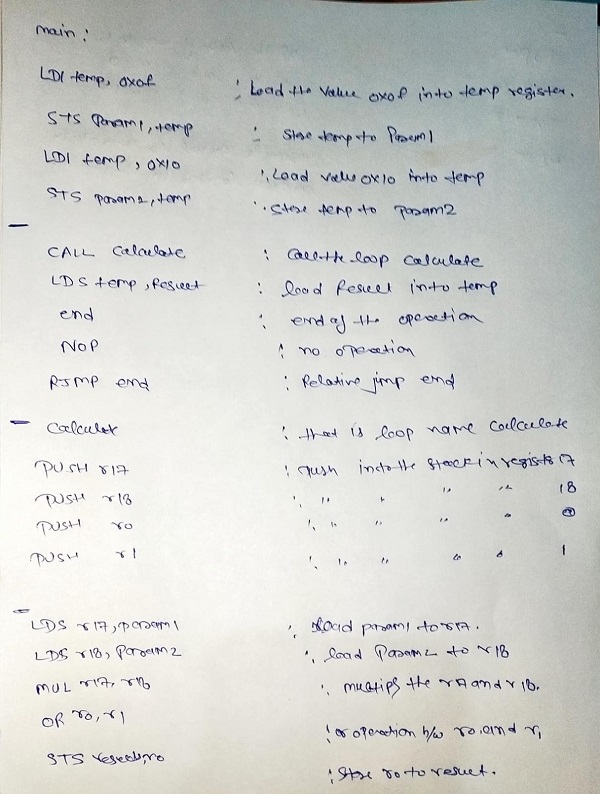 main :
LDI temp, 0x0f ; Load the value 0x0f into temp register.
STS Param1, temp ; Store temp to Param1
LDI temp, 0x10 ; Load value 0x10 into temp
STS param2, temp ; Store temp to param2
CALL Calculate ; call the loop calculate
LDS temp, Result ; load Result into temp
end ; end of the operation
NOP ; no operation
RJMP end ; Relative jump end
Calculate ; that is loop name calculate
PUSH r17 ; Push into the stack in register 17
PUSH r18 ; " " " " 18
PUSH r0 ; " " " " 0
PUSH r1 ; " " " " 1
LDS r17, param1 ; Load param1 to r17.
LDS r18, Param2 ; load Param2 to r18
MUL r17, r18 ; multiply the r17 and r18.
OR r0, r1 ; or operation b/w r0 and r1
STS result, r0 ; Store r0 to result.